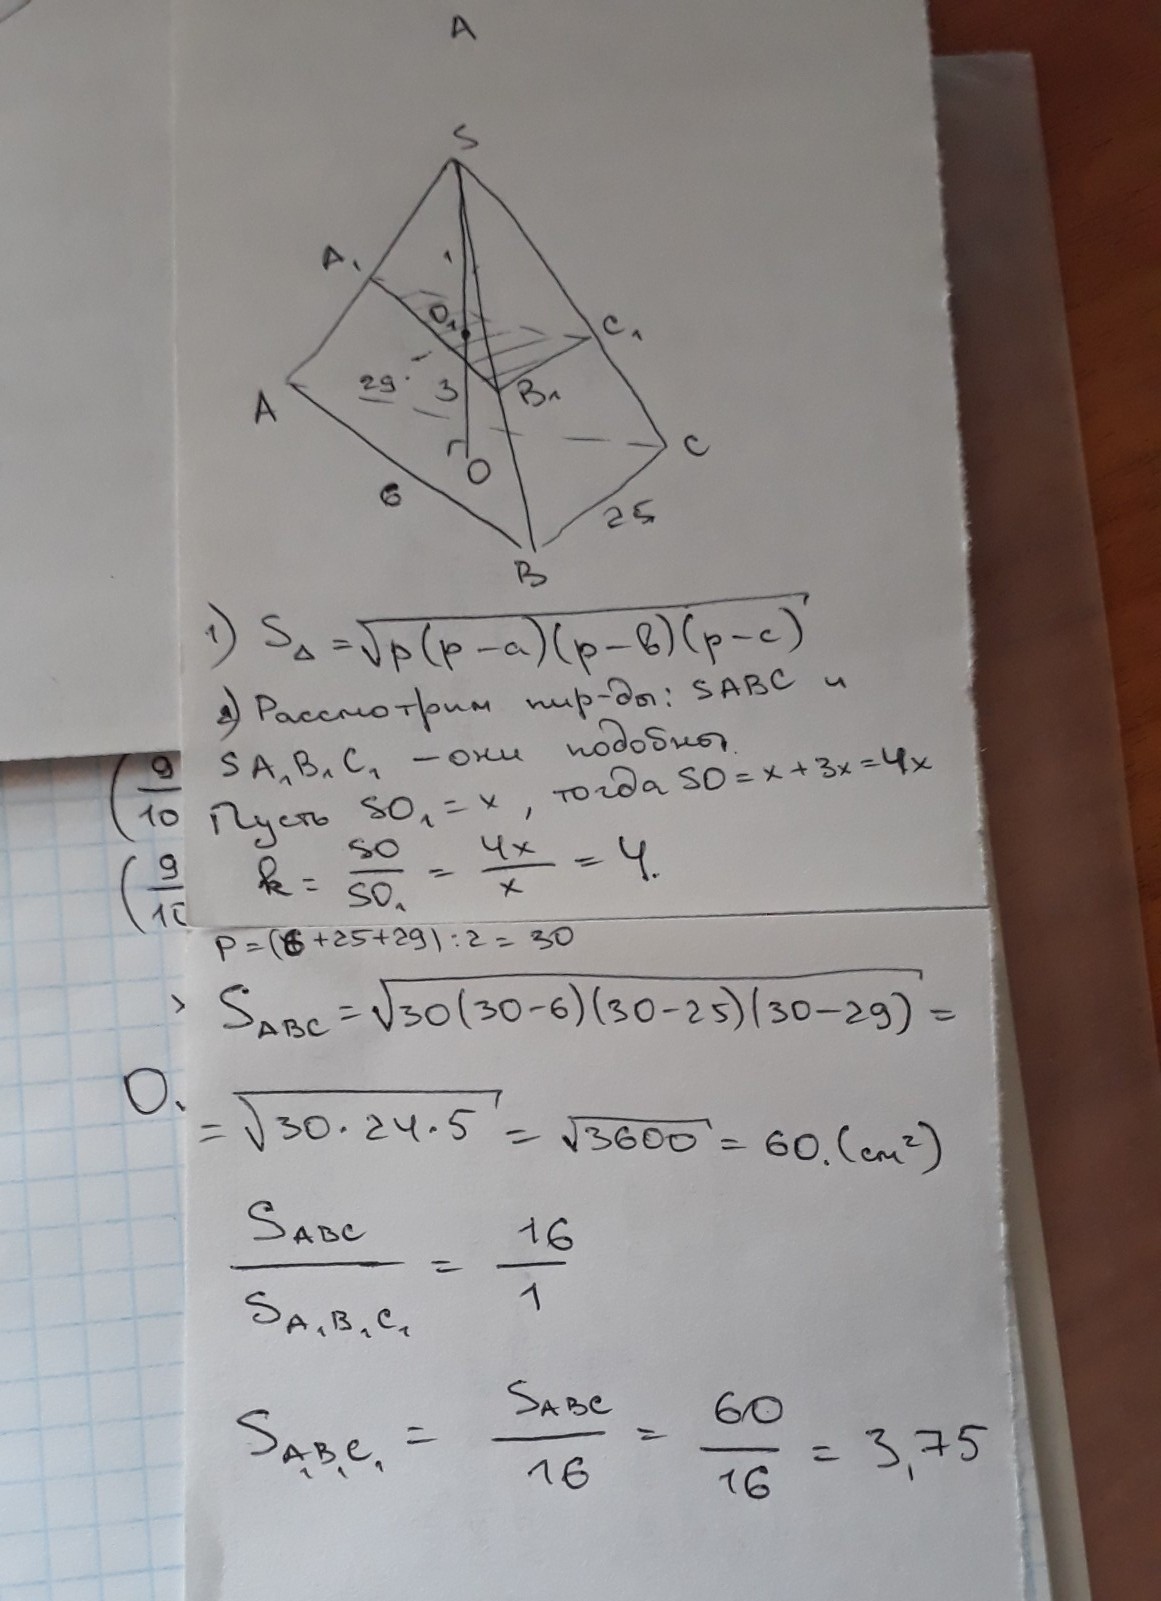 A
S
1
A₁
O₁
C₁
29
3
B₁
A
O
C
6
25
B
1) S△ = √p(p-a)(p-в)(p-c)
2) Рассмотрим пир-ды: SABC и
SA₁B₁C₁ – они подобны.
Пусть SO₁ = x, тогда SO = x + 3x = 4x
k = SO/SO₁ = 4x/x = 4.
(9/10
(9/10
P = (6 + 25 + 29) : 2 = 30
S_ABC = √30(30-6)(30-25)(30-29) =
O.
= √30·24·5 = √3600 = 60. (см²)
S_ABC/S_A₁B₁C₁ = 16/1
S_A₁B₁C₁ = S_ABC/16 = 60/16 = 3,75